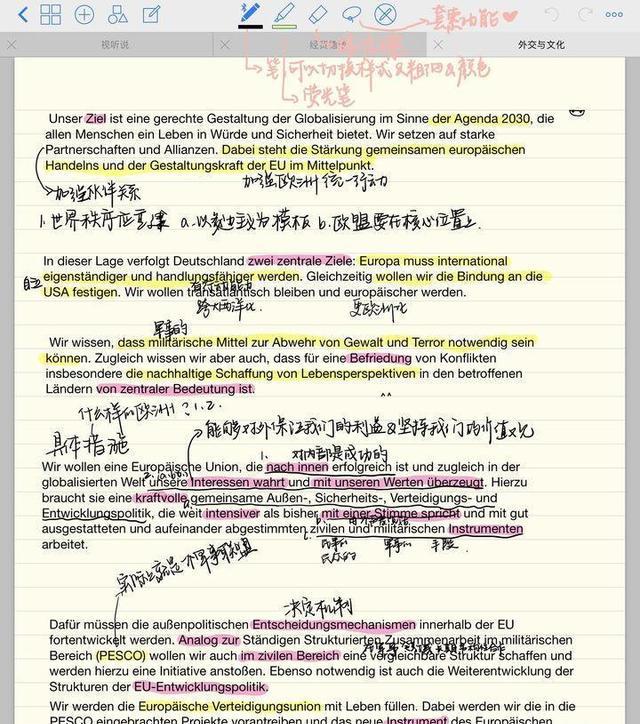 套索功能
视听说
经贸德语
外交与文化
笔可以切换样式及粗细及颜色
荧光笔
Unser Ziel ist eine gerechte Gestaltung der Globalisierung im Sinne der Agenda 2030, die
allen Menschen ein Leben in Würde und Sicherheit bietet. Wir setzen auf starke
Partnerschaften und Allianzen. Dabei steht die Stärkung gemeinsamen europäischen
Handelns und der Gestaltungskraft der EU im Mittelpunkt.
加强伙伴关系
加强欧洲统一行动
1. 世界秩序应 a. 以 为模板 b. 欧盟要在核心位置上.
In dieser Lage verfolgt Deutschland zwei zentrale Ziele: Europa muss international
eigenständiger und handlungsfähiger werden. Gleichzeitig wollen wir die Bindung an die
自立
USA festigen. Wir wollen transatlantisch bleiben und europäischer werden.
跨大西洋化.
更欧洲化
军事的
Wir wissen, dass militärische Mittel zur Abwehr von Gewalt und Terror notwendig sein
können. Zugleich wissen wir aber auch, dass für eine Befriedung von Konflikten
insbesondere die nachhaltige Schaffung von Lebensperspektiven in den betroffenen
Ländern von zentraler Bedeutung ist.
什么样的欧洲? 1. 2.
能够对外保证我们的利益及坚持我们的价值观
具体措施
1. 对内部是成功的
Wir wollen eine Europäische Union, die nach innen erfolgreich ist und zugleich in der
globalisierten Welt unsere Interessen wahrt und mit unseren Werten überzeugt. Hierzu
braucht sie eine kraftvolle gemeinsame Außen-, Sicherheits-, Verteidigungs- und
Entwicklungspolitik, die weit intensiver als bisher mit einer Stimme spricht und mit gut
ausgestatteten und aufeinander abgestimmten zivilen und militärischen Instrumenten
arbeitet.
民事的 军事的 手段
实际上就是个军事联盟
决定机制
Dafür müssen die außenpolitischen Entscheidungsmechanismen innerhalb der EU
fortentwickelt werden. Analog zur Ständigen Strukturierten Zusammenarbeit im militärischen
Bereich (PESCO) wollen wir auch im zivilen Bereich eine vergleichbare Struktur schaffen und
werden hierzu eine Initiative anstoßen. Ebenso notwendig ist auch die Weiterentwicklung der
Strukturen der EU-Entwicklungspolitik.
Wir werden die Europäische Verteidigungsunion mit Leben füllen. Dabei werden wir die in die
PESCO eingebrachten Projekte vorantreiben und das neue Instrument des Europäischen